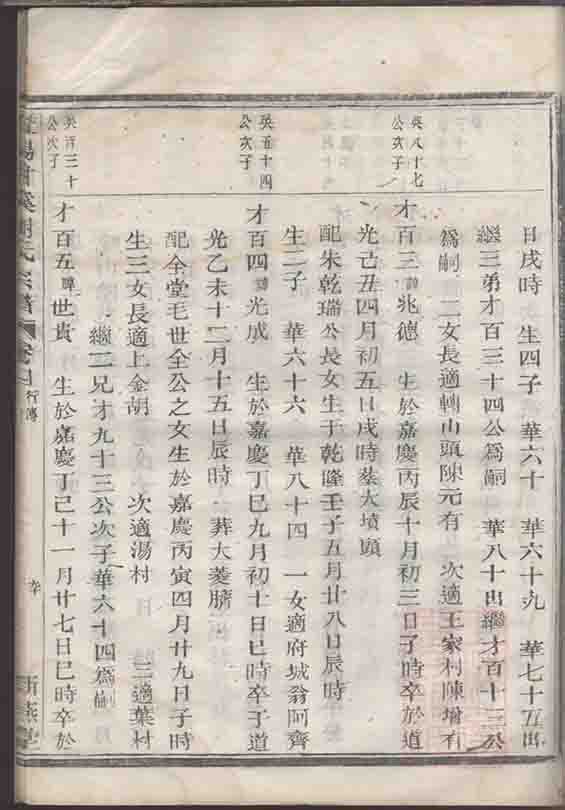 日戌時 生四子 華六十 華六十九 華七十五出
繼三弟才百三十四公爲嗣 華八十出繼才百十三公
爲嗣 二女長適轉山頭陳元有 次適王家村陳增有
吳八十七
公次子
才百三 諱兆德 生於嘉慶丙辰十月初三日子時卒於道
光己丑四月初五日戌時墓大墳頭
配朱乾瑞公長女生于乾隆壬子五月廿八日辰時
生二子 華六十六 華八十四 一女適府城翁阿齊
吳五十四
公次子
才百四 諱光成 生於嘉慶丁巳九月初十日巳時卒于道
光乙未十二月十五日辰時 葬大菱臍
配全堂毛世全公之女生於嘉慶丙寅四月廿九日子時
生三女長適上金胡 次適湯村 三適葉村
繼二兄才九十三公次子華六十四爲嗣
吳百三十
公次子
才百五 諱世貴 生於嘉慶丁巳十一月廿七日巳時卒於
氏宗譜 行傳